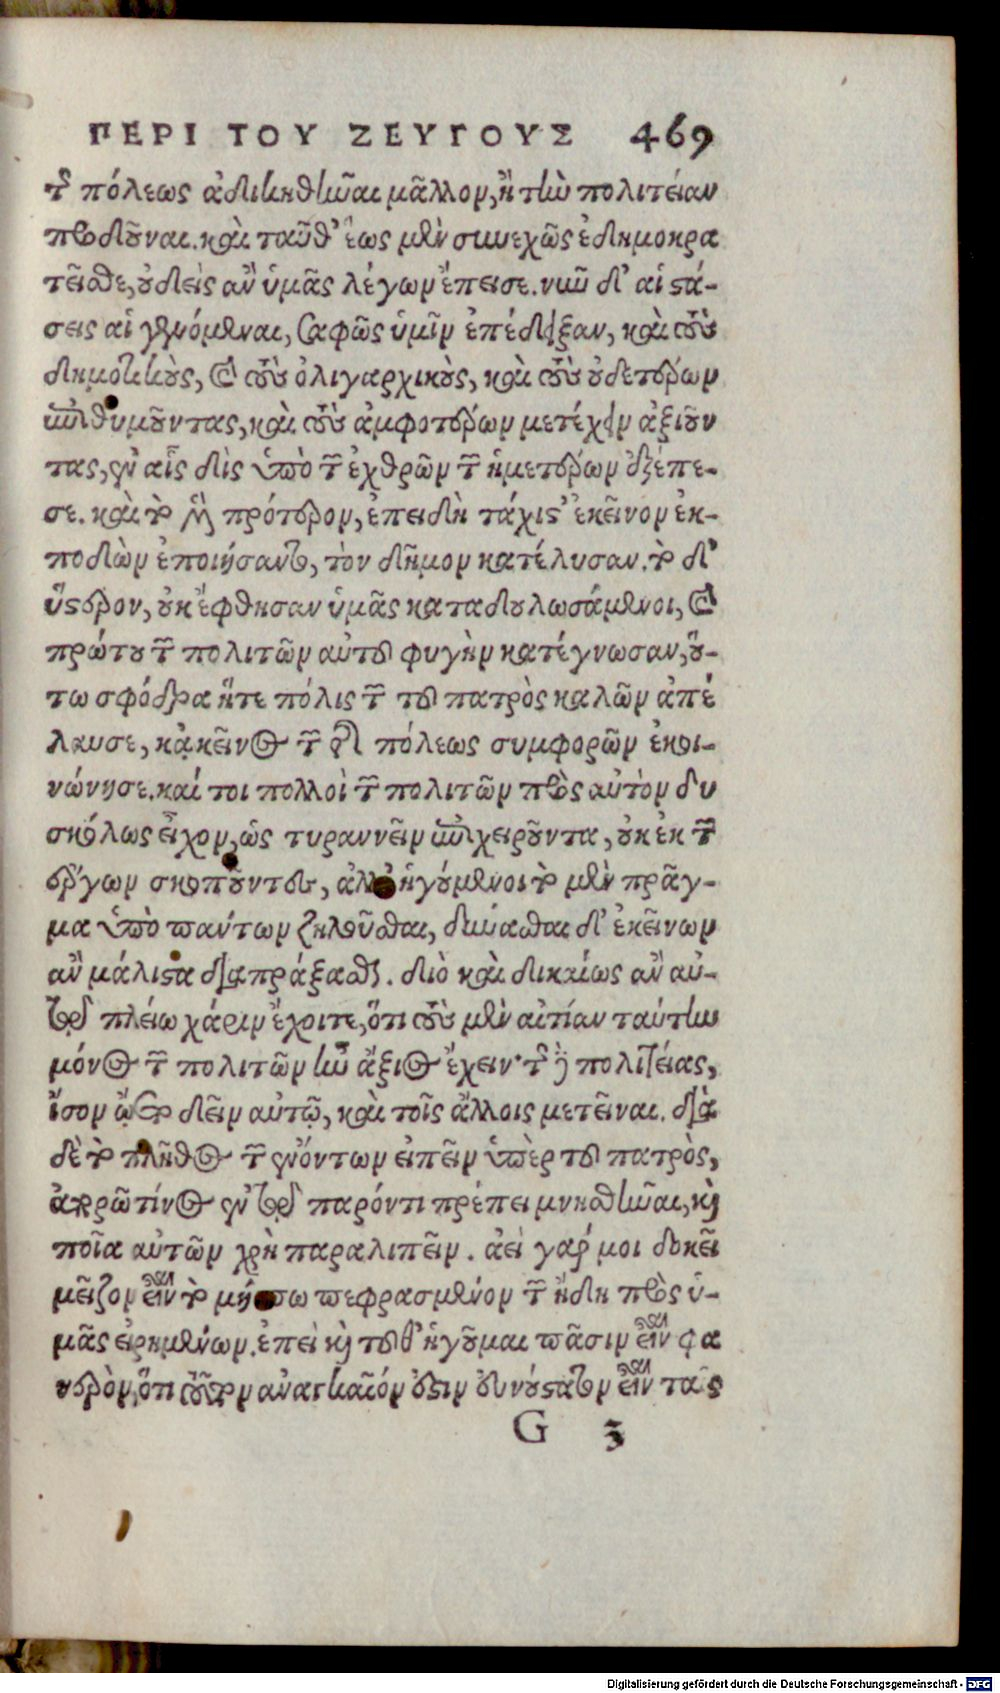 ΠΕΡΙ ΤΟΥ ΖΕΥΓΟΥΣ 469
τῆς πόλεως ἀδικηθῆναι μᾶλλον, ἢ τὴν πολιτείαν
προδοῦναι. καὶ ταῦθ' ἕως μὲν συνεχῶς ἐδημοκρα
τεῖσθε, οὐδεὶς ἂν ὑμᾶς λέγων ἔπεισε. νῦν δ' αἱ στά-
σεις αἱ γενόμεναι, σαφῶς ὑμῖν ἐπέδειξαν, καὶ τοὺς
δημοτικοὺς, καὶ τοὺς ὀλιγαρχικοὺς, καὶ τοὺς οὐδετέρων
ἐπιθυμοῦντας, καὶ τοὺς ἀμφοτέρων μετέχειν ἀξιοῦν
τας, ἐν αἷς δὶς ὑπὸ τῶν ἐχθρῶν τῶν ἡμετέρων ἐξέπε-
σε. καὶ τὸ μὲν πρότερον, ἐπειδὴ τάχιστ' ἐκεῖνον ἐκ-
ποδὼν ἐποιήσαντο, τὸν δῆμον κατέλυσαν. τὸ δ'
ὕστερον, οὐκ ἔφθησαν ὑμᾶς καταδουλωσάμενοι, καὶ
πρώτου τῶν πολιτῶν αὐτοῦ φυγὴν κατέγνωσαν, οὕ-
τω σφόδρα ἥτε πόλις τῶν τοῦ πατρὸς καλῶν ἀπέ
λαυσε, κᾀκεῖνος τῶν τῆς πόλεως συμφορῶν ἐκοι-
νώνησε. καί τοι πολλοὶ τῶν πολιτῶν πρὸς αὐτὸν δυ
σκόλως εἶχον, ὡς τυραννεῖν ἐπιχειροῦντα, οὐκ ἐκ τῶν
ἔργων σκοποῦντες, ἀλλ' ἡγούμενοι τὸ μὲν πρᾶγ-
μα ὑπὸ πάντων ζηλοῦσθαι, δύνασθαι δ' ἐκεῖνον
ἂν μάλιστα διαπράξασθαι. διὸ καὶ δικαίως ἂν αὐ-
τῷ πλείω χάριν ἔχοιτε, ὅτι τοὺς μὲν αἰτίαν ταύτην
μόνος τῶν πολιτῶν ἦν ἄξιος ἔχειν· τῆς δὲ πολιτείας,
ἴσον ᾤετο δεῖν αὐτῷ, καὶ τοῖς ἄλλοις μετεῖναι. διὰ
δὲ τὸ πλῆθος τῶν ἐνόντων εἰπεῖν ὑπὲρ τοῦ πατρὸς,
ἀπορῶ τίνος ἐν τῷ παρόντι πρέπει μνησθῆναι, καὶ
ποῖα αὐτῶν χρὴ παραλιπεῖν. ἀεὶ γάρ μοι δοκεῖ
μεῖζον εἶναι τὸ μήπω πεφρασμένον τῶν ἤδη πρὸς ὑ-
μᾶς εἰρημένων. ἐπεὶ καὶ τοῦθ' ἡγοῦμαι πᾶσιν εἶναι φα
νερὸν, ὅτι τοῦτον ἀναγκαῖόν ἐστιν εὐνούστατον εἶναι ταῖς
G 3
Digitalisierung gefördert durch die Deutsche Forschungsgemeinschaft - DFG